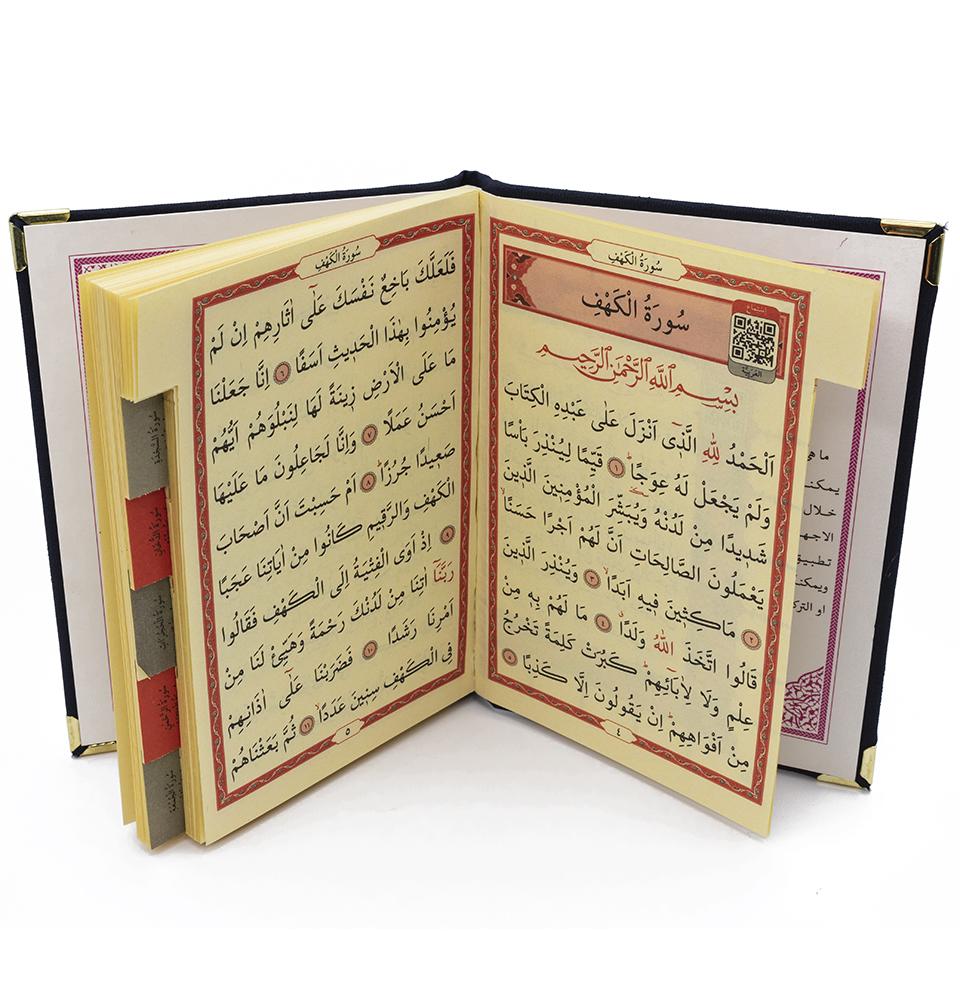 سُورَةُ الْكَهْفِ
سُورَةُ الْكَهْفِ
استماع
العربية
بِسْمِ اللّٰهِ الرَّحْمٰنِ الرَّحٖيمِ
اَلْحَمْدُ لِلّٰهِ الَّذٖٓي اَنْزَلَ عَلٰى عَبْدِهِ الْكِتَابَ
وَلَمْ يَجْعَلْ لَهُ عِوَجًاۜ ١ قَيِّمًا لِيُنْذِرَ بَأْسًا
شَدٖيدًا مِنْ لَدُنْهُ وَيُبَشِّرَ الْمُؤْمِنٖينَ الَّذٖينَ
يَعْمَلُونَ الصَّالِحَاتِ اَنَّ لَهُمْ اَجْرًا حَسَنًاۙ
٢ مَاكِثٖينَ فٖيهِ اَبَدًاۙ ٣ وَيُنْذِرَ الَّذٖينَ
قَالُوا اتَّخَذَ اللّٰهُ وَلَدًاۗ ٤ مَا لَهُمْ بِهٖ مِنْ
عِلْمٍ وَلَا لِاٰبَٓائِهِمْۜ كَبُرَتْ كَلِمَةً تَخْرُجُ
مِنْ اَفْوَاهِهِمْۜ اِنْ يَقُولُونَ اِلَّا كَذِبًا ٥
٤
سُورَةُ الْكَهْفِ
فَلَعَلَّكَ بَاخِعٌ نَفْسَكَ عَلٰٓى اٰثَارِهِمْ اِنْ لَمْ
يُؤْمِنُوا بِهٰذَا الْحَدٖيثِ اَسَفًا ٦ اِنَّا جَعَلْنَا
مَا عَلَى الْاَرْضِ زٖينَةً لَهَا لِنَبْلُوَهُمْ اَيُّهُمْ
اَحْسَنُ عَمَلًا ٧ وَاِنَّا لَجَاعِلُونَ مَا عَلَيْهَا
صَعٖيدًا جُرُزًاۜ ٨ اَمْ حَسِبْتَ اَنَّ اَصْحَابَ
الْكَهْفِ وَالرَّقٖيمِ كَانُوا مِنْ اٰيَاتِنَا عَجَبًا
٩ اِذْ اَوَى الْفِتْيَةُ اِلَى الْكَهْفِ فَقَالُوا
رَبَّنَٓا اٰتِنَا مِنْ لَدُنْكَ رَحْمَةً وَهَيِّئْ لَنَا مِنْ
اَمْرِنَا رَشَدًا ١٠ فَضَرَبْنَا عَلٰٓى اٰذَانِهِمْ
فِي الْكَهْفِ سِنٖينَ عَدَدًاۙ ١١ ثُمَّ بَعَثْنَاهُمْ
٥
سُورَةُ السَّجْدَةِ
سُورَةُ الدُّخَانِ
سُورَةُ الْحُجُرَاتِ
سُورَةُ الرَّحْمٰنِ
سُورَةُ الْجُمُعَةِ
ما هي
خلال
او الترك